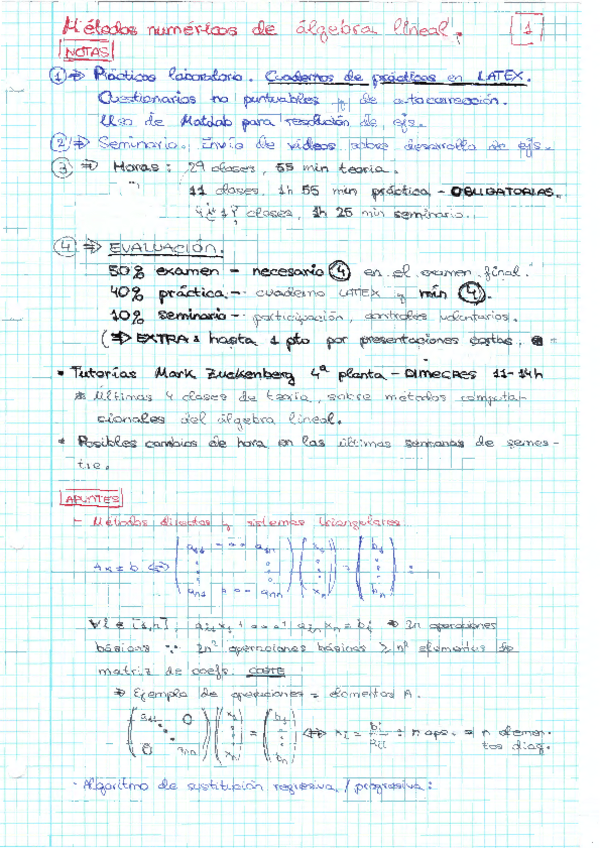 Métodos numéricos de álgebra lineal. [1]
NOTAS
① ⇒ Prácticas laboratorio. Cuadernos de prácticas en LATEX.
Cuestionarios no puntuables de autocorrección.
Uso de Matlab para resolución de ejs.
② ⇒ Seminario. Envío de vídeos sobre desarrollo de ejs.
③ ⇒ Horas: 29 clases, 55 min teoría.
11 clases, 1h 55 min práctica - OBLIGATORIAS.
clases, 1h 25 min seminario.
④ ⇒ EVALUACIÓN.
50% examen - necesario ④ en el examen final.
40% práctica - cuaderno LATEX y min ④.
10% seminario - participación, controles voluntarios.
(⇒ EXTRA: hasta 1 pto por presentaciones cortas.
• Tutorías Mark Zuckenberg 4ª planta - DIMECRES 11-14h
* Últimas 4 clases de teoría, sobre métodos computa-
cionales del álgebra lineal.
* Posibles cambios de hora en las últimas semanas de semes-
tre.
APUNTES
- Métodos directos y sistemas triangulares
Ax = b ⇔ (a11 --- a1n ⋮ ⋮ an1 --- ann) (x1 ⋮ xn) = (b1 ⋮ bn) :
∀i ∈ [1,n], ai1x1 + --- + ainxn = bi ⇒ 2n operaciones
básicas ∵ 2n² operaciones básicas ≥ n² elementos de
matriz de coefs. COSTE
⇒ Ejemplo de operaciones = elementos A.
(a11 0 ⋱ 0 ann) (x1 ⋮ xn) = (b1 ⋮ bn) ⇔ xi = bi/aii : n ops. = n elemen-
tos diag.
- Algoritmo de sustitución regresiva / progresiva: